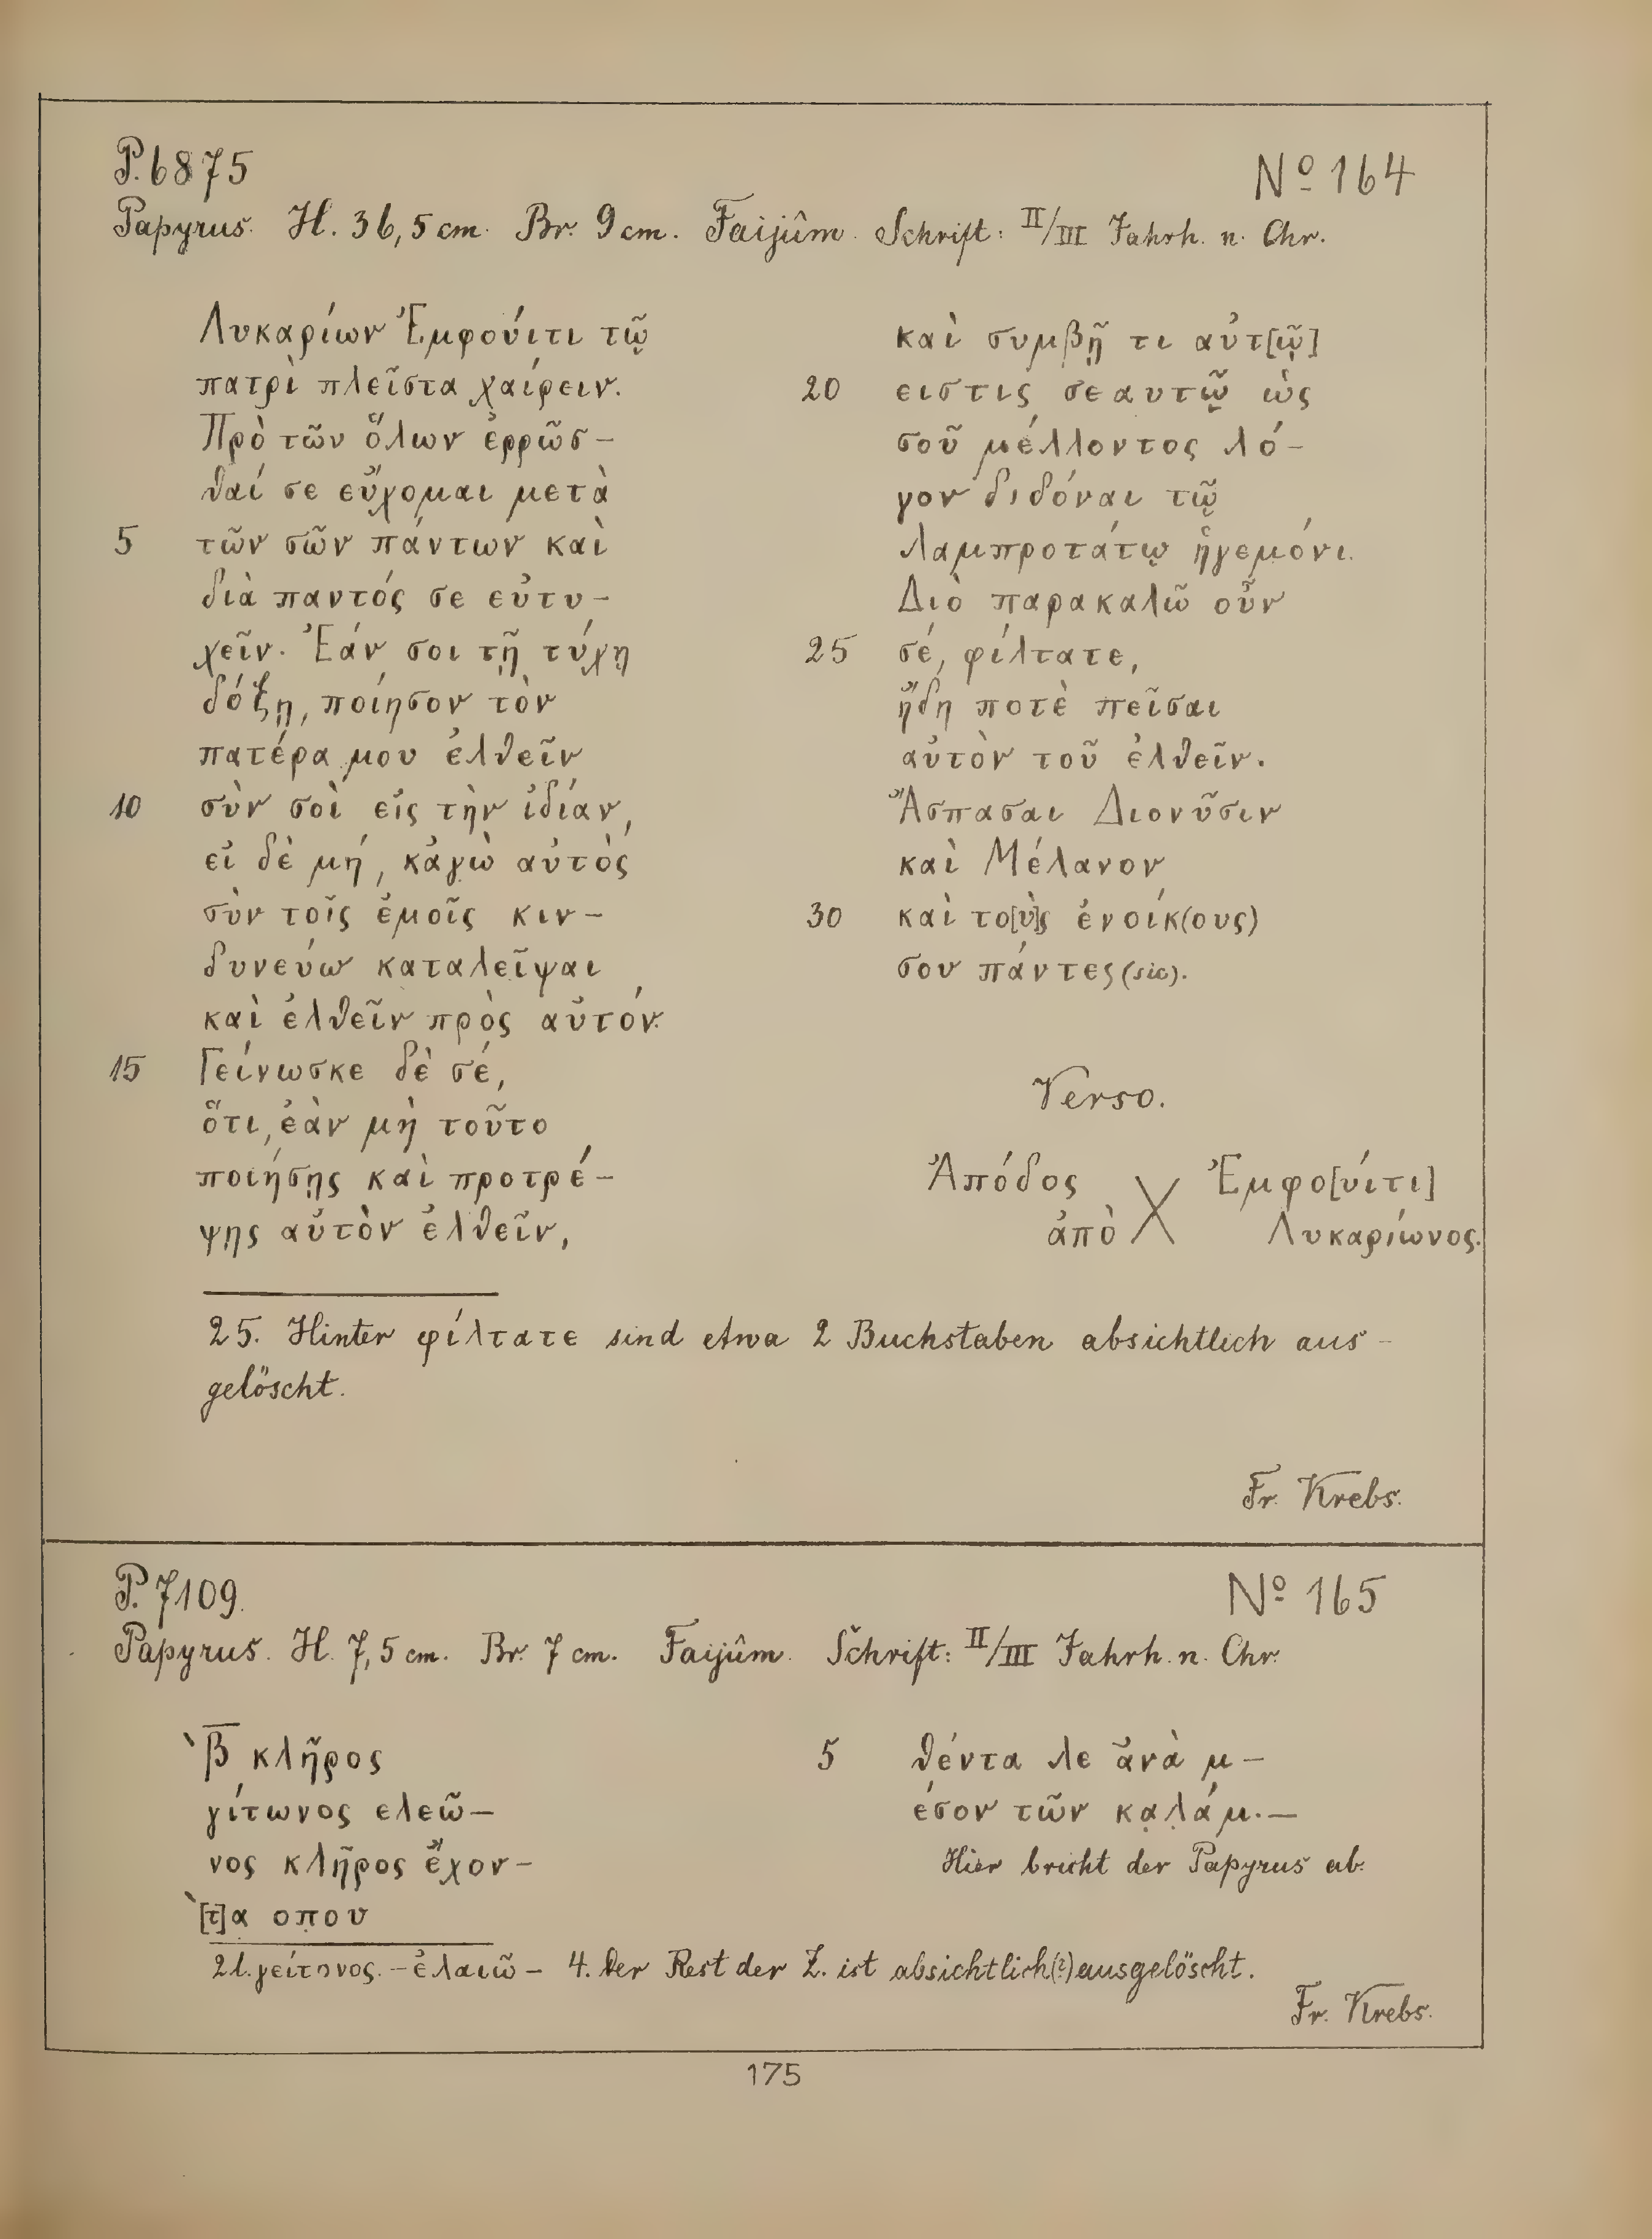 P. 6875
Nº 164
Papyrus. H. 36,5 cm. Br. 9 cm. Faijûm. Schrift: II/III Jahrh. n. Chr.
Λυκαρίων Ἐμφούιτι τῷ
πατρὶ πλεῖστα χαίρειν.
Πρὸ τῶν ὅλων ἐρρῶσ-
θαί σε εὔχομαι μετὰ
5 τῶν σῶν πάντων καὶ
διὰ παντός σε εὐτυ-
χεῖν. Ἐάν σοι τῇ τύχῃ
δόξῃ, ποίησον τὸν
πατέρα μου ἐλθεῖν
10 σὺν σοὶ εἰς τὴν ἰδίαν,
εἰ δὲ μή, κἀγὼ αὐτὸς
σὺν τοῖς ἐμοῖς κιν-
δυνεύω καταλεῖψαι
καὶ ἐλθεῖν πρὸς αὐτόν.
15 Γείνωσκε δὲ σέ,
ὅτι, ἐὰν μὴ τοῦτο
ποιήσῃς καὶ προτρέ-
ψῃς αὐτὸν ἐλθεῖν,
καὶ συμβῇ τι αὐτ[ῷ]
20 ειστις σεαυτῷ ὡς
σοῦ μέλλοντος λό-
γον διδόναι τῷ
λαμπροτάτῳ ἡγεμόνι.
Διὸ παρακαλῶ οὖν
25 σέ, φίλτατε,
ἤδη ποτὲ πεῖσαι
αὐτὸν τοῦ ἐλθεῖν.
Ἄσπασαι Διονῦσιν
καὶ Μέλανον
30 καὶ το[ὺ]ς ἐνοίκ(ους)
σου πάντες (sic).
Verso.
Ἀπόδος X Ἐμφο[υίτι]
ἀπὸ Λυκαρίωνος.
25. Hinter φίλτατε sind etwa 2 Buchstaben absichtlich aus-
gelöscht.
Fr. Krebs.
P. 7109.
Nº 165
Papyrus. H. 7,5 cm. Br. 7 cm. Faijûm. Schrift: II/III Jahrh. n. Chr.
β̅ κλῆρος
γίτωνος ελεῶ-
νος κλῆρος ἔχον-
[τ]α οπου
5 θέντα λε ἀνὰ μ-
έσον τῶν κα̣λ̣άμ.-
Hier bricht der Papyrus ab.
2 l. γείτονος. - ἐλαιῶ - 4. Der Rest der Z. ist absichtlich(?) ausgelöscht.
Fr. Krebs.
175